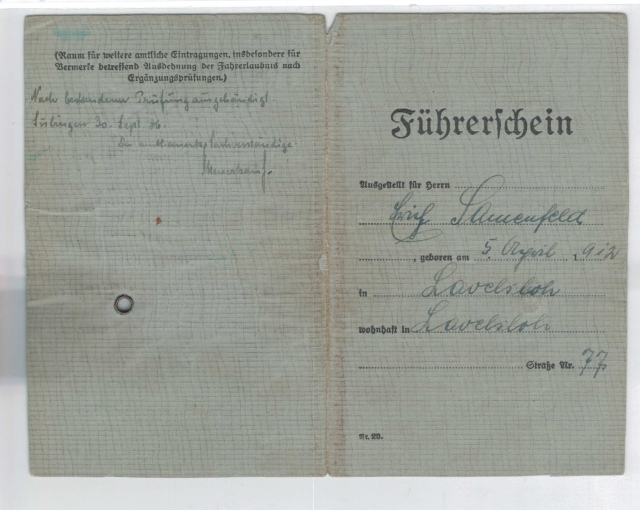 (Raum für weitere amtliche Eintragungen, insbesondere für
Vermerke betreffend Ausdehnung der Fahrerlaubnis nach
Ergänzungsprüfungen.)
Nach bestandener Prüfung ausgehändigt
Sulingen 30. Sept. 36.
Der amtl. anerk. Sachverständige
Führerschein
Ausgestellt für Herrn
Erich
, geboren am 5. April 1912
in Lavelsloh
wohnhaft in Lavelsloh
Straße Nr. 77
Nr. 20.